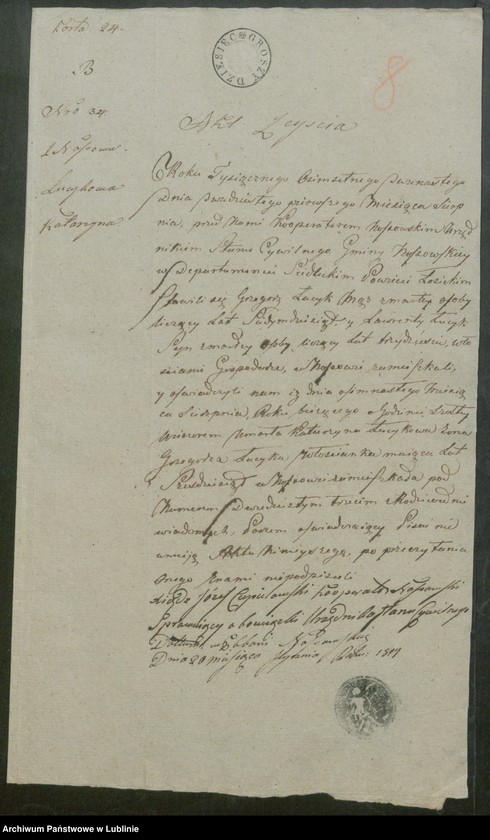 Karta 24.
DZIESIĘC GROSZY
8
B
Nro 34
Nossowa
Łucykowa
Katarzyna
Akt Zeyscia
Roku Tysiącznego Osmsetnego
Dnia Dwudziestego pierwszego Miesiąca Sierp
nia, przed Nami Kooperatorem Nossowskim Urzęd
nikiem Stanu Cywilnego Gminy Nossowskiey
w Departamencie Siedleckim Powiecie Łosickim
Stawili się Grzegorz Łucyk Mąż zmarłey osoby
liczący Lat Siedmdziesiąt y Laurenty Łucyk
Syn zmarłey osoby, liczący Lat trzydzieści, wło
scianie Gospodarze, w Nossowie zamieszkali,
y oswiadczyli nam iż dnia osmnastego Miesią
ca Sierpnia, Roku bieżącego o Godzinie Szostey
wieczorem Umarła Katarzyna Łucykowa żona
Grzegorza Łucyka Włoscianka maiąca Lat
w Nossowie zamieszkała pod
Numerem Dwudziestym trzecim
Poczem oswiadczaiący Pisać nie
umieją Akt Ninieyszego, po przeczytaniu
onego Znami niepodpisali
Xiądz Józef Kooperator Nossowski
Sprawuiący obowiązki Urzędnika Stanu Cywilnego
Dnia 20 miesiąca Stycznia Roku: 1817
Archiwum Państwowe w Lublinie